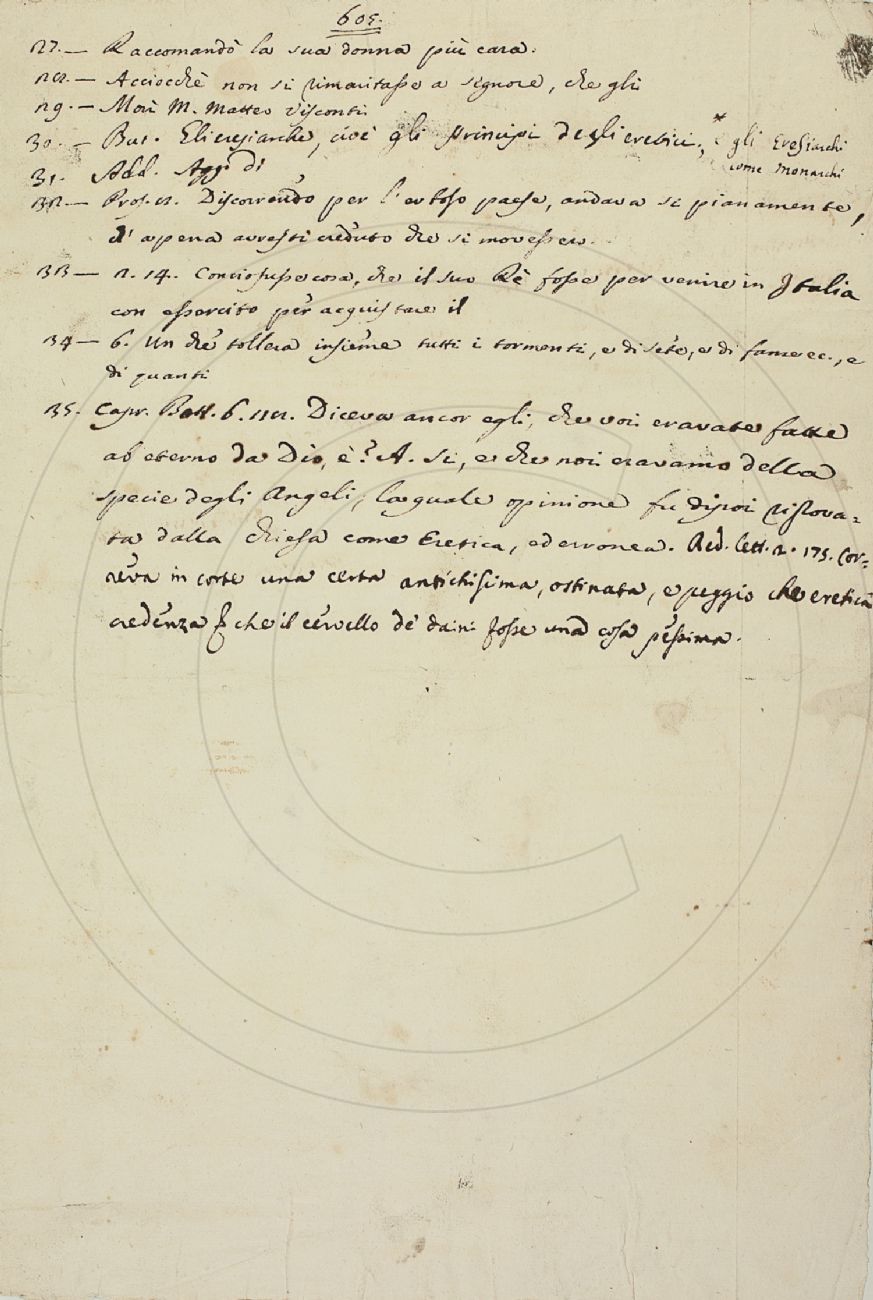 605.
27. — Raccomandò la sua donna più cara.
28. — Acciocchè non si rimaritasse a signore, che gli
29. — Morì M. Matteo Visconti
30. — But. Eli eresiarche, cioè gli principi degli eretici; * e gli Eresiarchi
come monarchi
31. Add. Agg. di
32. — Pros. 2. Discorrendo per l'ertoso paese, andava si pianamente,
ch' apena avresti creduto che si movessero.
33 — 2. 14. Conciofussecosa, che il suo Rè fosse per venire in Italia
con essercito per acquistare il
34 — 6. Un che tollera insieme tutti i tormenti, e di sete, e di fame ec., e
di quanti
35. Capr. Bott. 6. 112. Diceva ancor egli, che voi eravate fatte
ab eterno da Dio, è? A. Si, e che noi eravamo della
specie degli Angeli, la quale opinione fu dipoi ripova-
ta dalla chiesa come Eretica, ed erronea. Red. lett. 2. 175. Cor-
reva in corte una certa antichissima, ostinata, e peggio che eretica
credenza che il cervello de' daini fosse una cosa pessima.